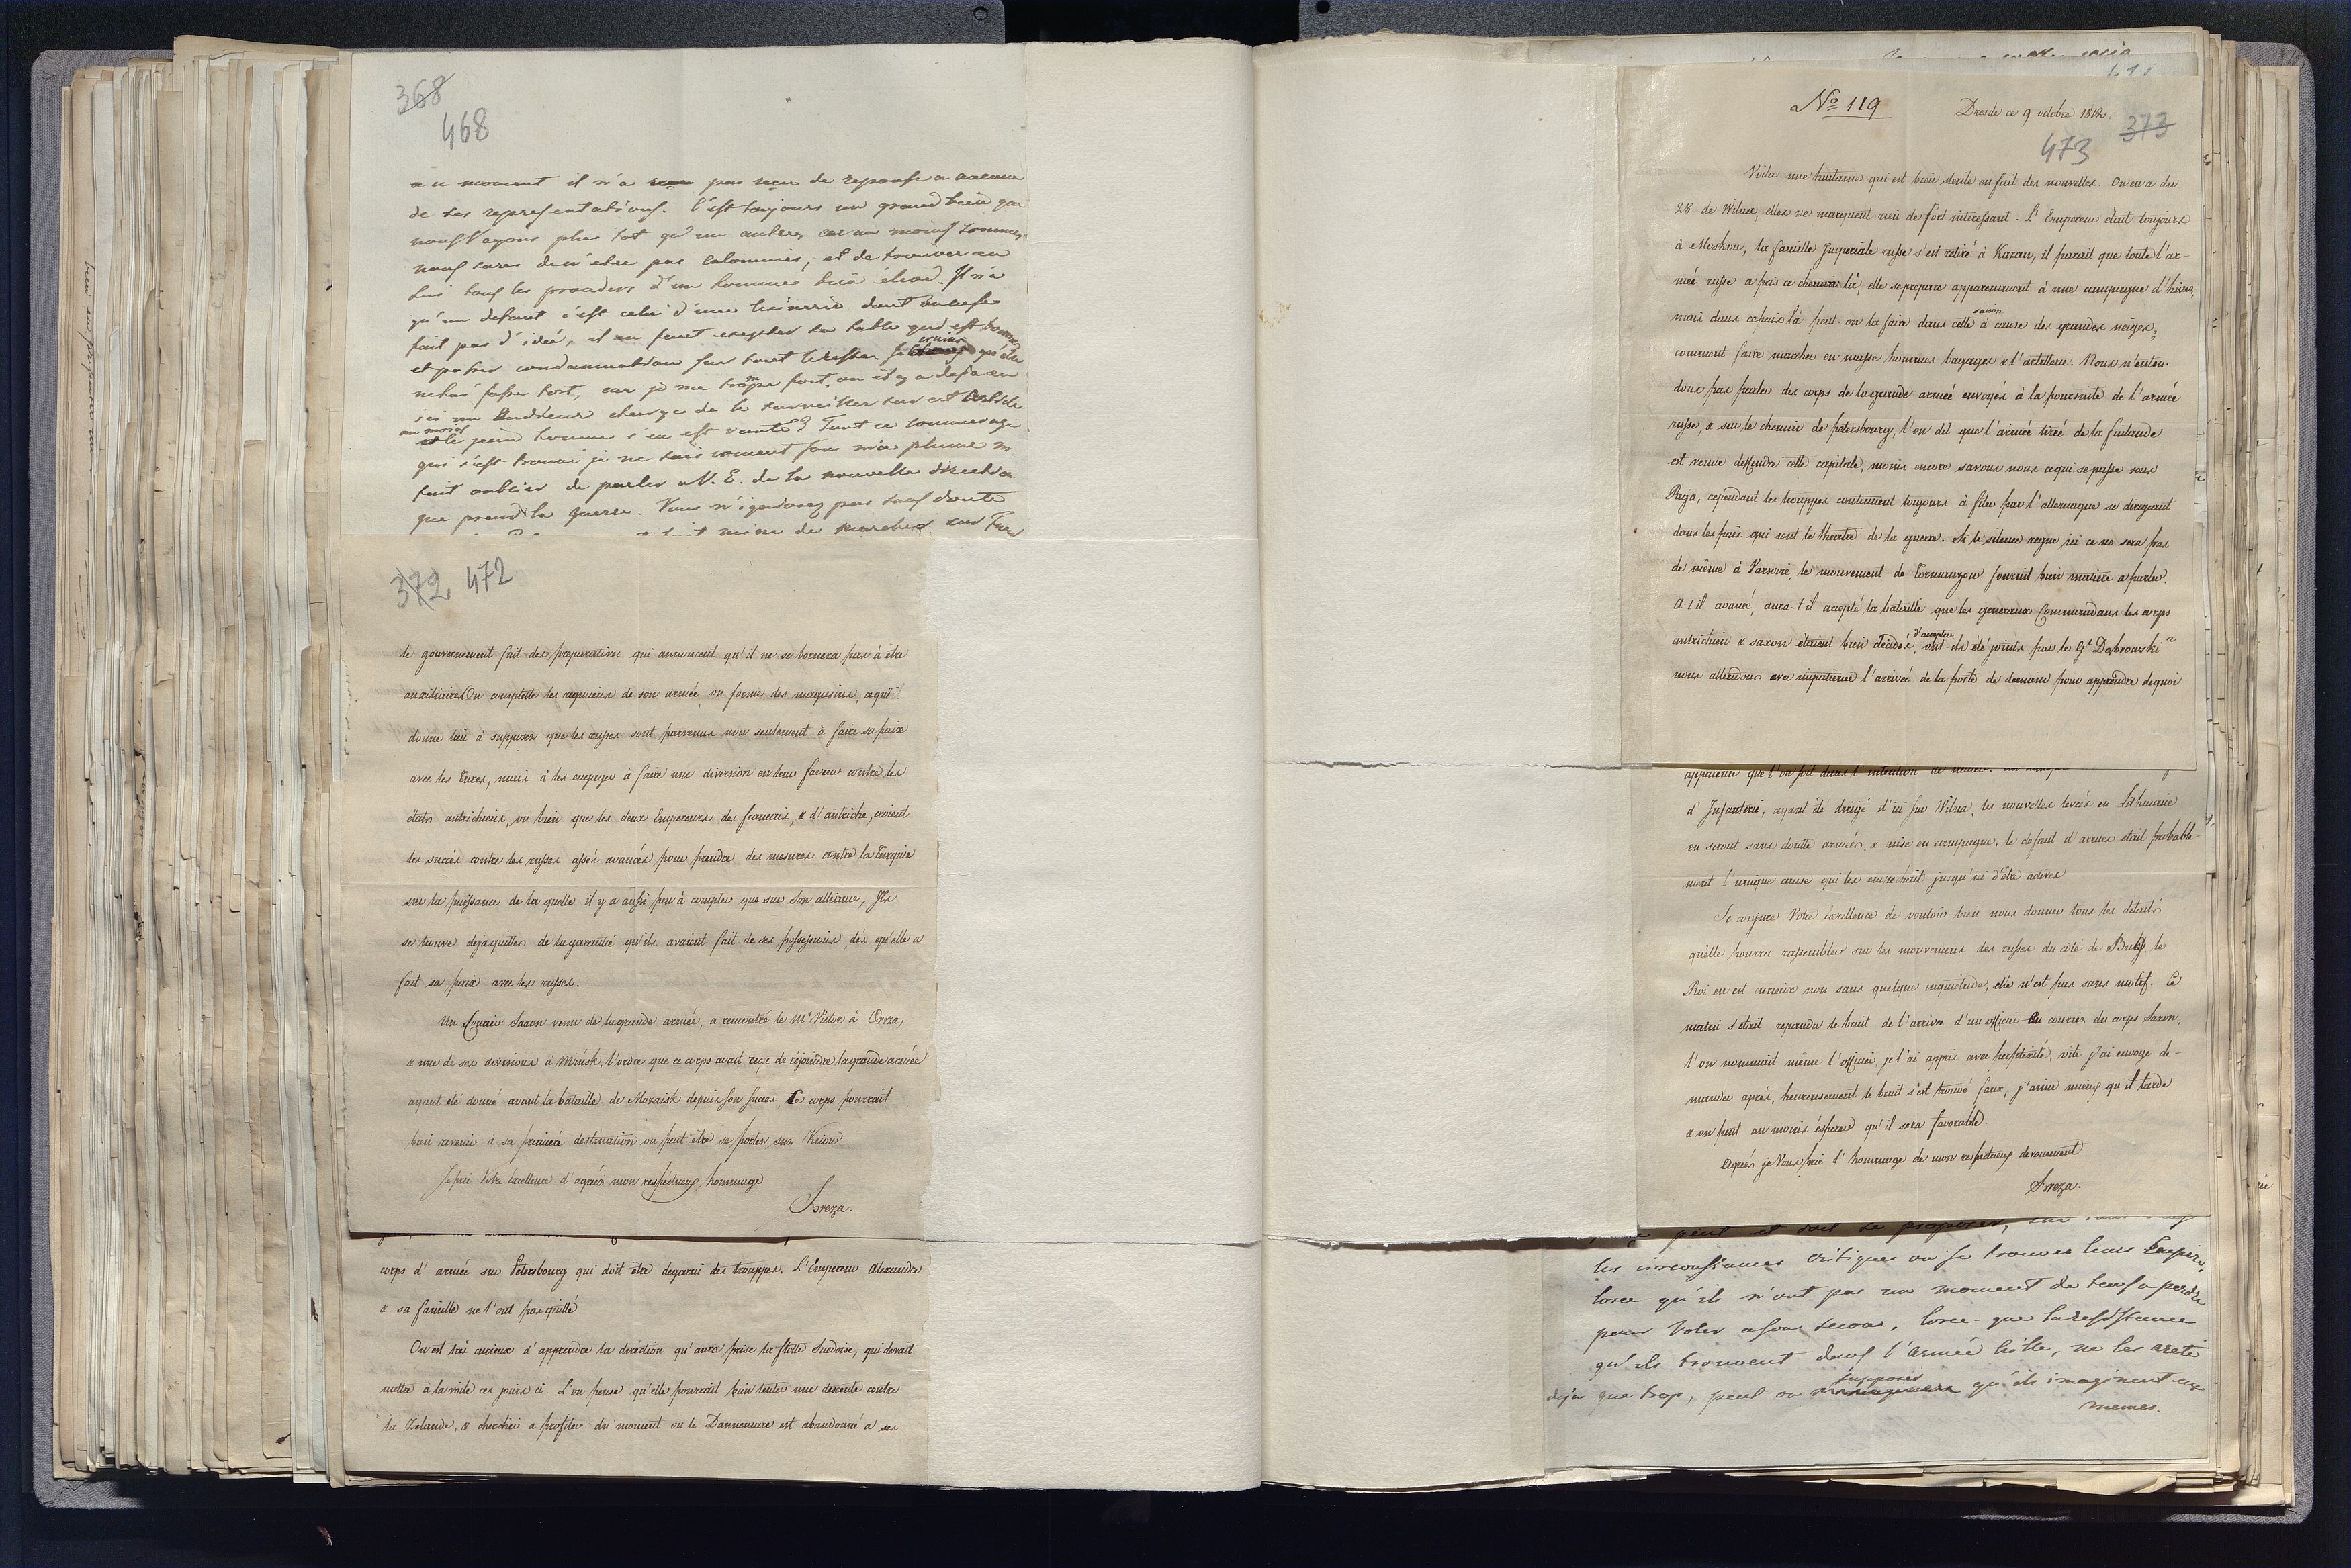 368
468
a ce moment il n'a pas reçu de reponse a aucune
de ses representations. C'est toujours un grand bien que
nous l'ayons plus tot qu'un autre, car au moins sommes
nous surs d'en etre pas calomniés, et de trouver en
lui tous les procedés d'un homme bien élevé. Il n'a
qu'un defaut c'est celui d'une lesinerie dont on ne se
fait pas d'idée, il en faut excepter sa table qui est bonne
et passer condamnation sur tout le reste. Je crains qu'elle
ne lui fasse tort, car je me trompe fort, ou il y a deja eu
ici un Auditeur chargé de le surveiller sur cet article
au moins le jeune homme s'en est vanté. Tout ce commerage
qui s'est trouvé je ne sais coment sous ma plume m'a
fait oublier de parler a V. E. de la nouvelle direction
que prend la guerre. Vous n'ignorez pas sans doute
fait mine de marcher sur
372 472
le gouvernement fait des preparatives qui annoncent qu'il ne se bornera pas à être
auxiliaire. On complette les regimens de son armée, on forme des magasins, ce qui
donne lieu à supposer que les russes sont parvenus non seulement à faire sa paix
avec les Turcs, mais à les engager à faire une diversion en leur faveur contre les
états autrichiens, ou bien que les deux Empereurs des francais, & d'autriche, croient
les succés contre les russes assés avancés pour prendre des mesures contre la Turquie
sur la puissance de la quelle il y a aussi peu à compter que sur son alliance, Ils
se trouve deja quittes de la garantie qu'ils avaient fait de ses possessions, dés qu'elle a
fait sa paix avec les russes.
Un Courier Saxon venu de la grande armée, a rencontré le Ml Victor à Orsza,
& une de ses divisions à Minsk, l'ordre que ce corps avait reçu de rejoindre la grande armée
ayant eté donné avant la bataille de Mozaisk depuis son succes Ce corps pourrait
bien revenir à sa premiere destination ou peut etre se porter sur Kiiow
Je prie Votre Excellence d'agréer mon respectueux hommage
Breza.
corps d'armée sur Petersbourg qui doit etre degarni des trouppes. L'Empereur Alexandre
& sa famille ne l'ont pas quitté
On est trés curieux d'apprendre la direction qu'aura prise la flotte Suedoise, qui devait
mettre à la voile ces jours ci. L'on pense qu'elle pourrait bien tenter une descente contre
la Zelande, & chercher a profiter du moment ou le Dannemarc est abandonné a ses
No 119
Dresde ce 9 octobre 1812.
373
473
Voila une huitaine qui est bien sterile en fait des nouvelles. On en a du
28 de Wilna, elles ne marquent rien de fort interessant. L'Empereur etait toujours
à Moskou, la famille Imperiale russe s'est retiré à Kazan, il parait que toute l'ar-
mée russe a pris ce chemin là, elle se prepare apparemment à une campagne d'hiver,
mais dans ce pais là peut on la faire dans cette saison à cause des grandes neiges,
comment faire marcher en masse hommes bagages & l'artillerie. Nous n'enten-
dons pas parler des corps de la grande armée envoyés à la poursuite de l'armée
russe, & sur le chemin de petersbourg, l'on dit que l'armée tirée de la finlande
est venue deffendre cette capitale, moins encore savons nous ce qui se passe sous
Riga, cependant les trouppes continuent toujours à filer par l'allemagne se dirigeant
dans les pais qui sont le theatre de la guerre. Si le silence regne ici ce ne sera pas
de même à Varsovie, le mouvement de Tormanzow fournit bien matiere a parler.
A-t-il avancé, aura-t-il accepté la bataille que les generaux Commendans les corps
autrichien & saxon étaient bien décidés d'accepter, ont-ils été joints par le Gl Dąbrowski?
nous attendons avec impatience l'arrivé de la poste de demain pour apprendre de quoi
apparence que l'on soit dans l'intention de
d'Infanterie, ayant été dirigé d'ici sur Wilna, les nouvelles levées en Lithuanie
en seront sans doutte armées, & mise en campagne, le defaut d'armes etait probable-
ment l'unique cause qui les empechait jusqu'ici d'être actives
Je conjure Votre Excellence de vouloir bien nous donner tous les details
qu'elle pourra rassembler sur les mouvemens des russes du coté de Bug le
Roi en est curieux non sans quelque inquietude, elle n'est pas sans motif. Ce
matin s'etait repandu le bruit de l'arrivée d'un officier en courier du corps Saxon,
l'on nommait même l'officier, je l'ai appris avec perplexité, vite j'ai envoyé de-
mander aprés, heureusement le bruit s'est trouvé faux, j'aime mieux qu'il tarde
& on peut au moins ésperer qu'il sera favorable.
Agréés je Vous prie l'hommage de mon respectueux devouement
Breza.
peut et doit se proposer,
les circonstances critiques ou se trouve leur Empire,
lorsqu'ils n'ont pas un moment de tems a perdre
pour voler a son secour, lorsque la resistance
qu'ils trouvent dans l'Armée
deja que trop, peut on supposer qu'ils imaginent eux
memes.